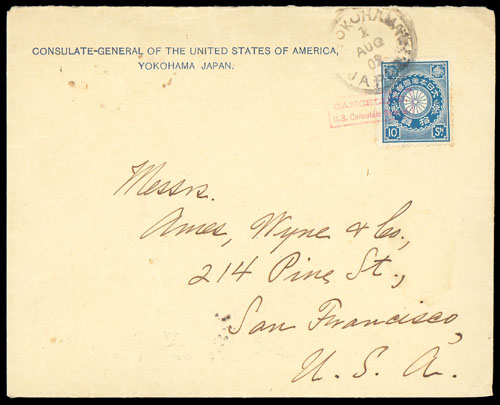 CONSULATE-GENERAL OF THE UNITED STATES OF AMERICA,
YOKOHAMA JAPAN.
YOKOHAMA
AUG
09
JAPAN
CANCEL
U.S. Consulate
10 Sn.
Messrs.
Ames, Wyne & Co.,
214 Pine St.,
San Francisco,
U. S. A.